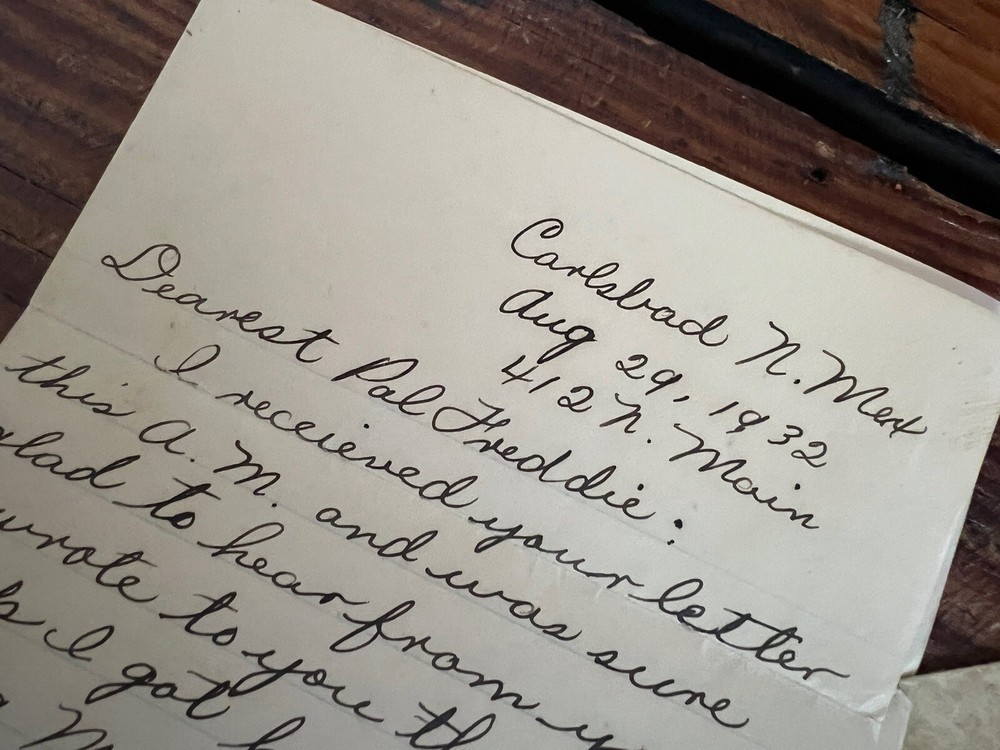 Carlsbad N. Mex
Aug 29, 1932
412 N. Main
Dearest Pal Freddie:
I received your letter
this A. M. and was sure
glad to hear from
wrote to you
I got